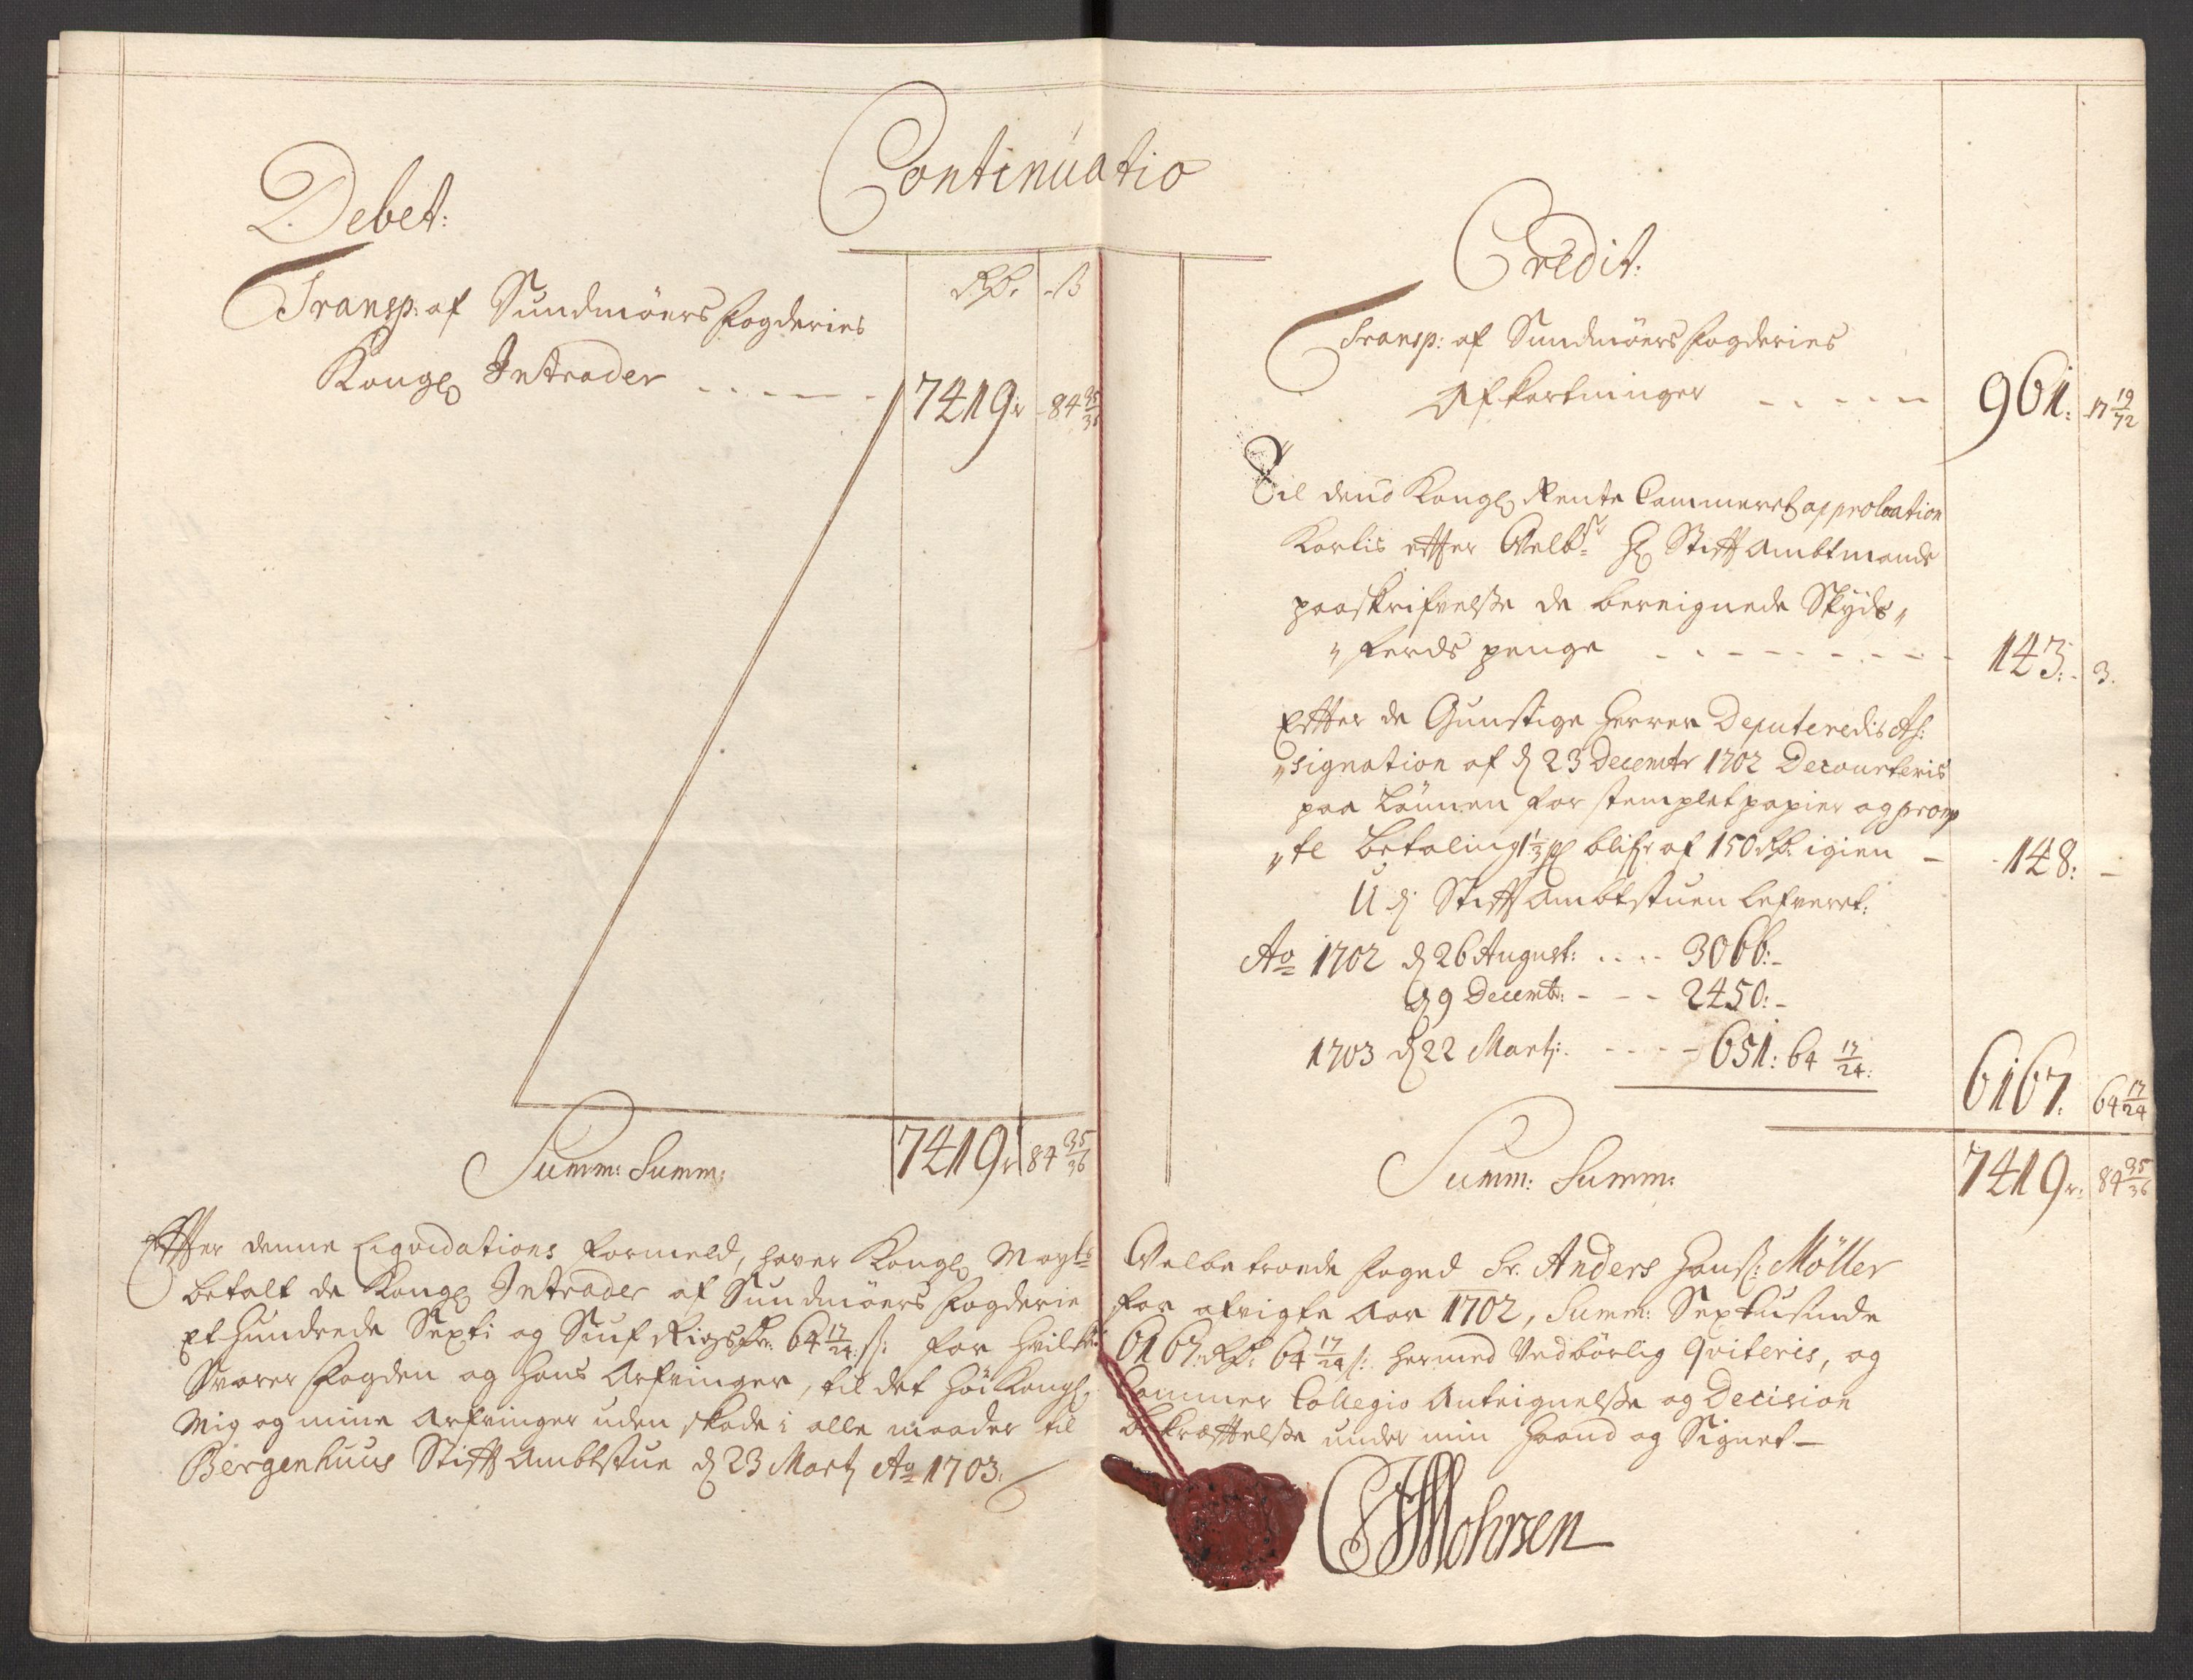 Continuatio
Debet:
Rd. ß
Transp: af Sundmöers fogderies
Kongl Intrader - - - - - 7419: 84 35/36
Summ: Summ: 7419: 84 35/36
Credit:
Transp: af Sundmöers fogderies
Afkortninger - - - - - 961: 17 19/72
Til dend Kongl Rente Cammerets approbation
Kortis efter Velb: H Stiftambtmands
paaskrifvelße de bereignede Skyds„
„ferds penge - - - - - - - - - 143: 3.
Efter de Gunstige Herrer Deputeredis As:
„signation af d 23 Decembr 1702 Decourteris
paa Lönnen for stemplet papier og promp
„te betaling 1 1/3 p blifr af 150 Rd. igien - 148: -
U dj Stiftambtstuen lefveret:
Ao 1702 d 26 August: . . . . 3066: -
d 9 Decembr: - - - 2450: -
1703 d 22 Martj: - - - - 651: 64 17/24:
6167: 64 17/24
Summ: Summ: 7419: 84 35/36
Efter denne Liqvidations formeld, haver Kongl Mayts Velbetroede foged Sr. Anders Hansß: Möller
betalt de Kongl Intrader af Sundmöers fogderie for afvigte Aar 1702, Summ: Sextusinde
Et Hundrede Sexti og Siuf Rigsdr: 64 17/24 ß: for hvilke 6167 Rd: 64 17/24 ß: hermed Vedbörlig qviteris, og
Svarer fogden og hans Arfvinger, til det Höi Kongl. Cammer Collegio Anteignelße og Decision
Mig og mine Arfvinger uden skade i alle maader til bekræftelße under min Haand og Signet -
Bergenhuus Stiftambtstue d 23 Martj Ao 1703.
Mohrsen